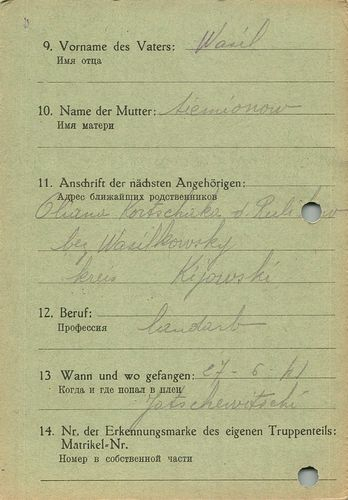 9. Vorname des Vaters: Wasil
Имя отца
10. Name der Mutter: Siemionow
Имя матери
11. Anschrift der nächsten Angehörigen:
Адрес ближайших родственников
Kortschaka d.
bez Wasilkowsky
kreis Kijowski
12. Beruf: Landarb
Профессия
13 Wann und wo gefangen: 27-6-41
Когда и где попал в плен
Jatschewitschi
14. Nr. der Erkennungsmarke des eigenen Truppenteils:
Matrikel-Nr.
Номер в собственной части